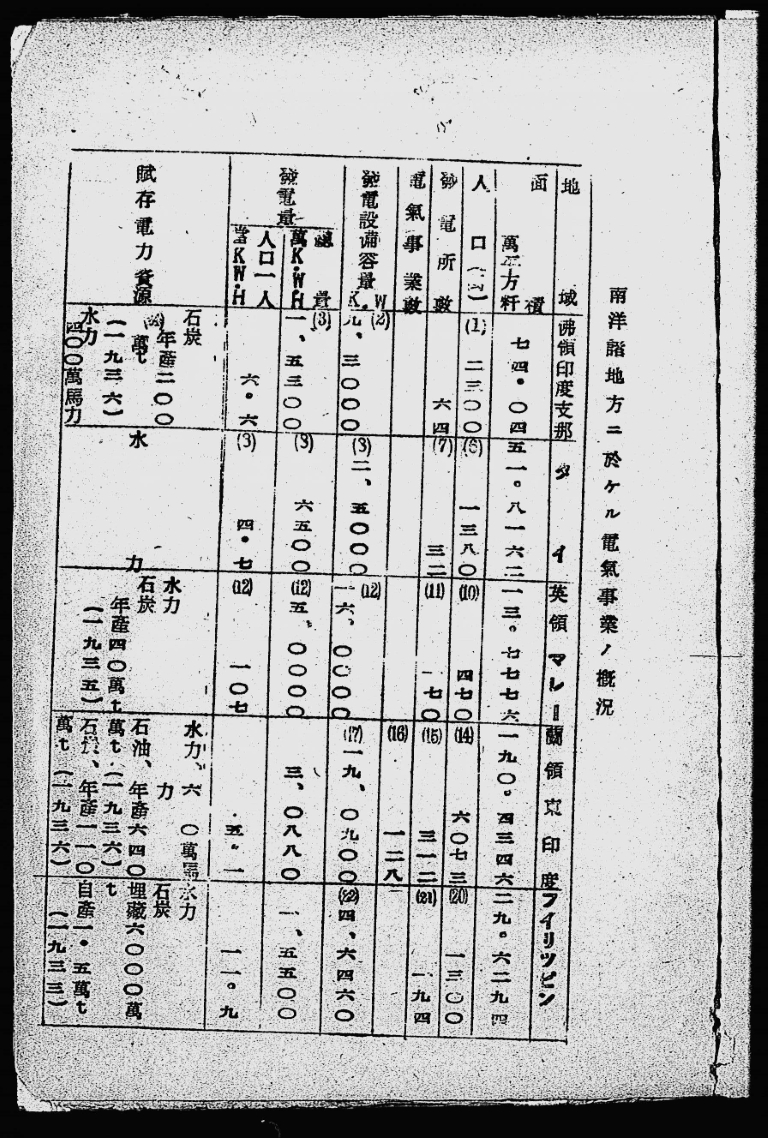 南洋諸地方ニ於ケル電氣事業ノ概況
地域
佛領印度支那
タイ
英領マレー
蘭領東印度
フイリツピン
面積
萬平方粁
七四・〇四
五一。八一六二
一三。七七七六
一九〇。四三四六
二九。六二九四
人口
(1)
二三〇〇
(6)
一三八〇
(10)
四七〇
(14)
六〇七三
(20)
一三〇〇
發電所數
六四
(7)
三二
(11)
一七〇
(15)
三一二
(21)
一九四
電氣事業數
(16)
一二八
發電設備容量
K.W
(2)
九、三〇〇〇
(3)
二、五〇〇〇
(12)
一六、〇〇〇〇
(17)
一九、〇九〇〇
(22)
四、六四六〇
發電量
總量
萬K.W.H
(3)
一、五三〇〇
(3)
六五〇〇
(12)
五、〇〇〇〇
三、〇八八〇
一、五五〇〇
人口一人
當K.W.H
六・六
(3)
四・七
(12)
一〇七
五・一
一一。九
賦存電力資源
石炭
年產二〇〇
萬t
(一九三六)
水力
四〇〇萬馬力
水力
水力
石炭
年產四〇萬t
(一九三五)
水力、六〇萬馬力
石油、年產六四〇
萬t(一九三六)
石炭、年產一一〇
萬t(一九三六)
水力
石炭
埋藏六〇〇〇萬t
自產一・五萬t
(一九三三)